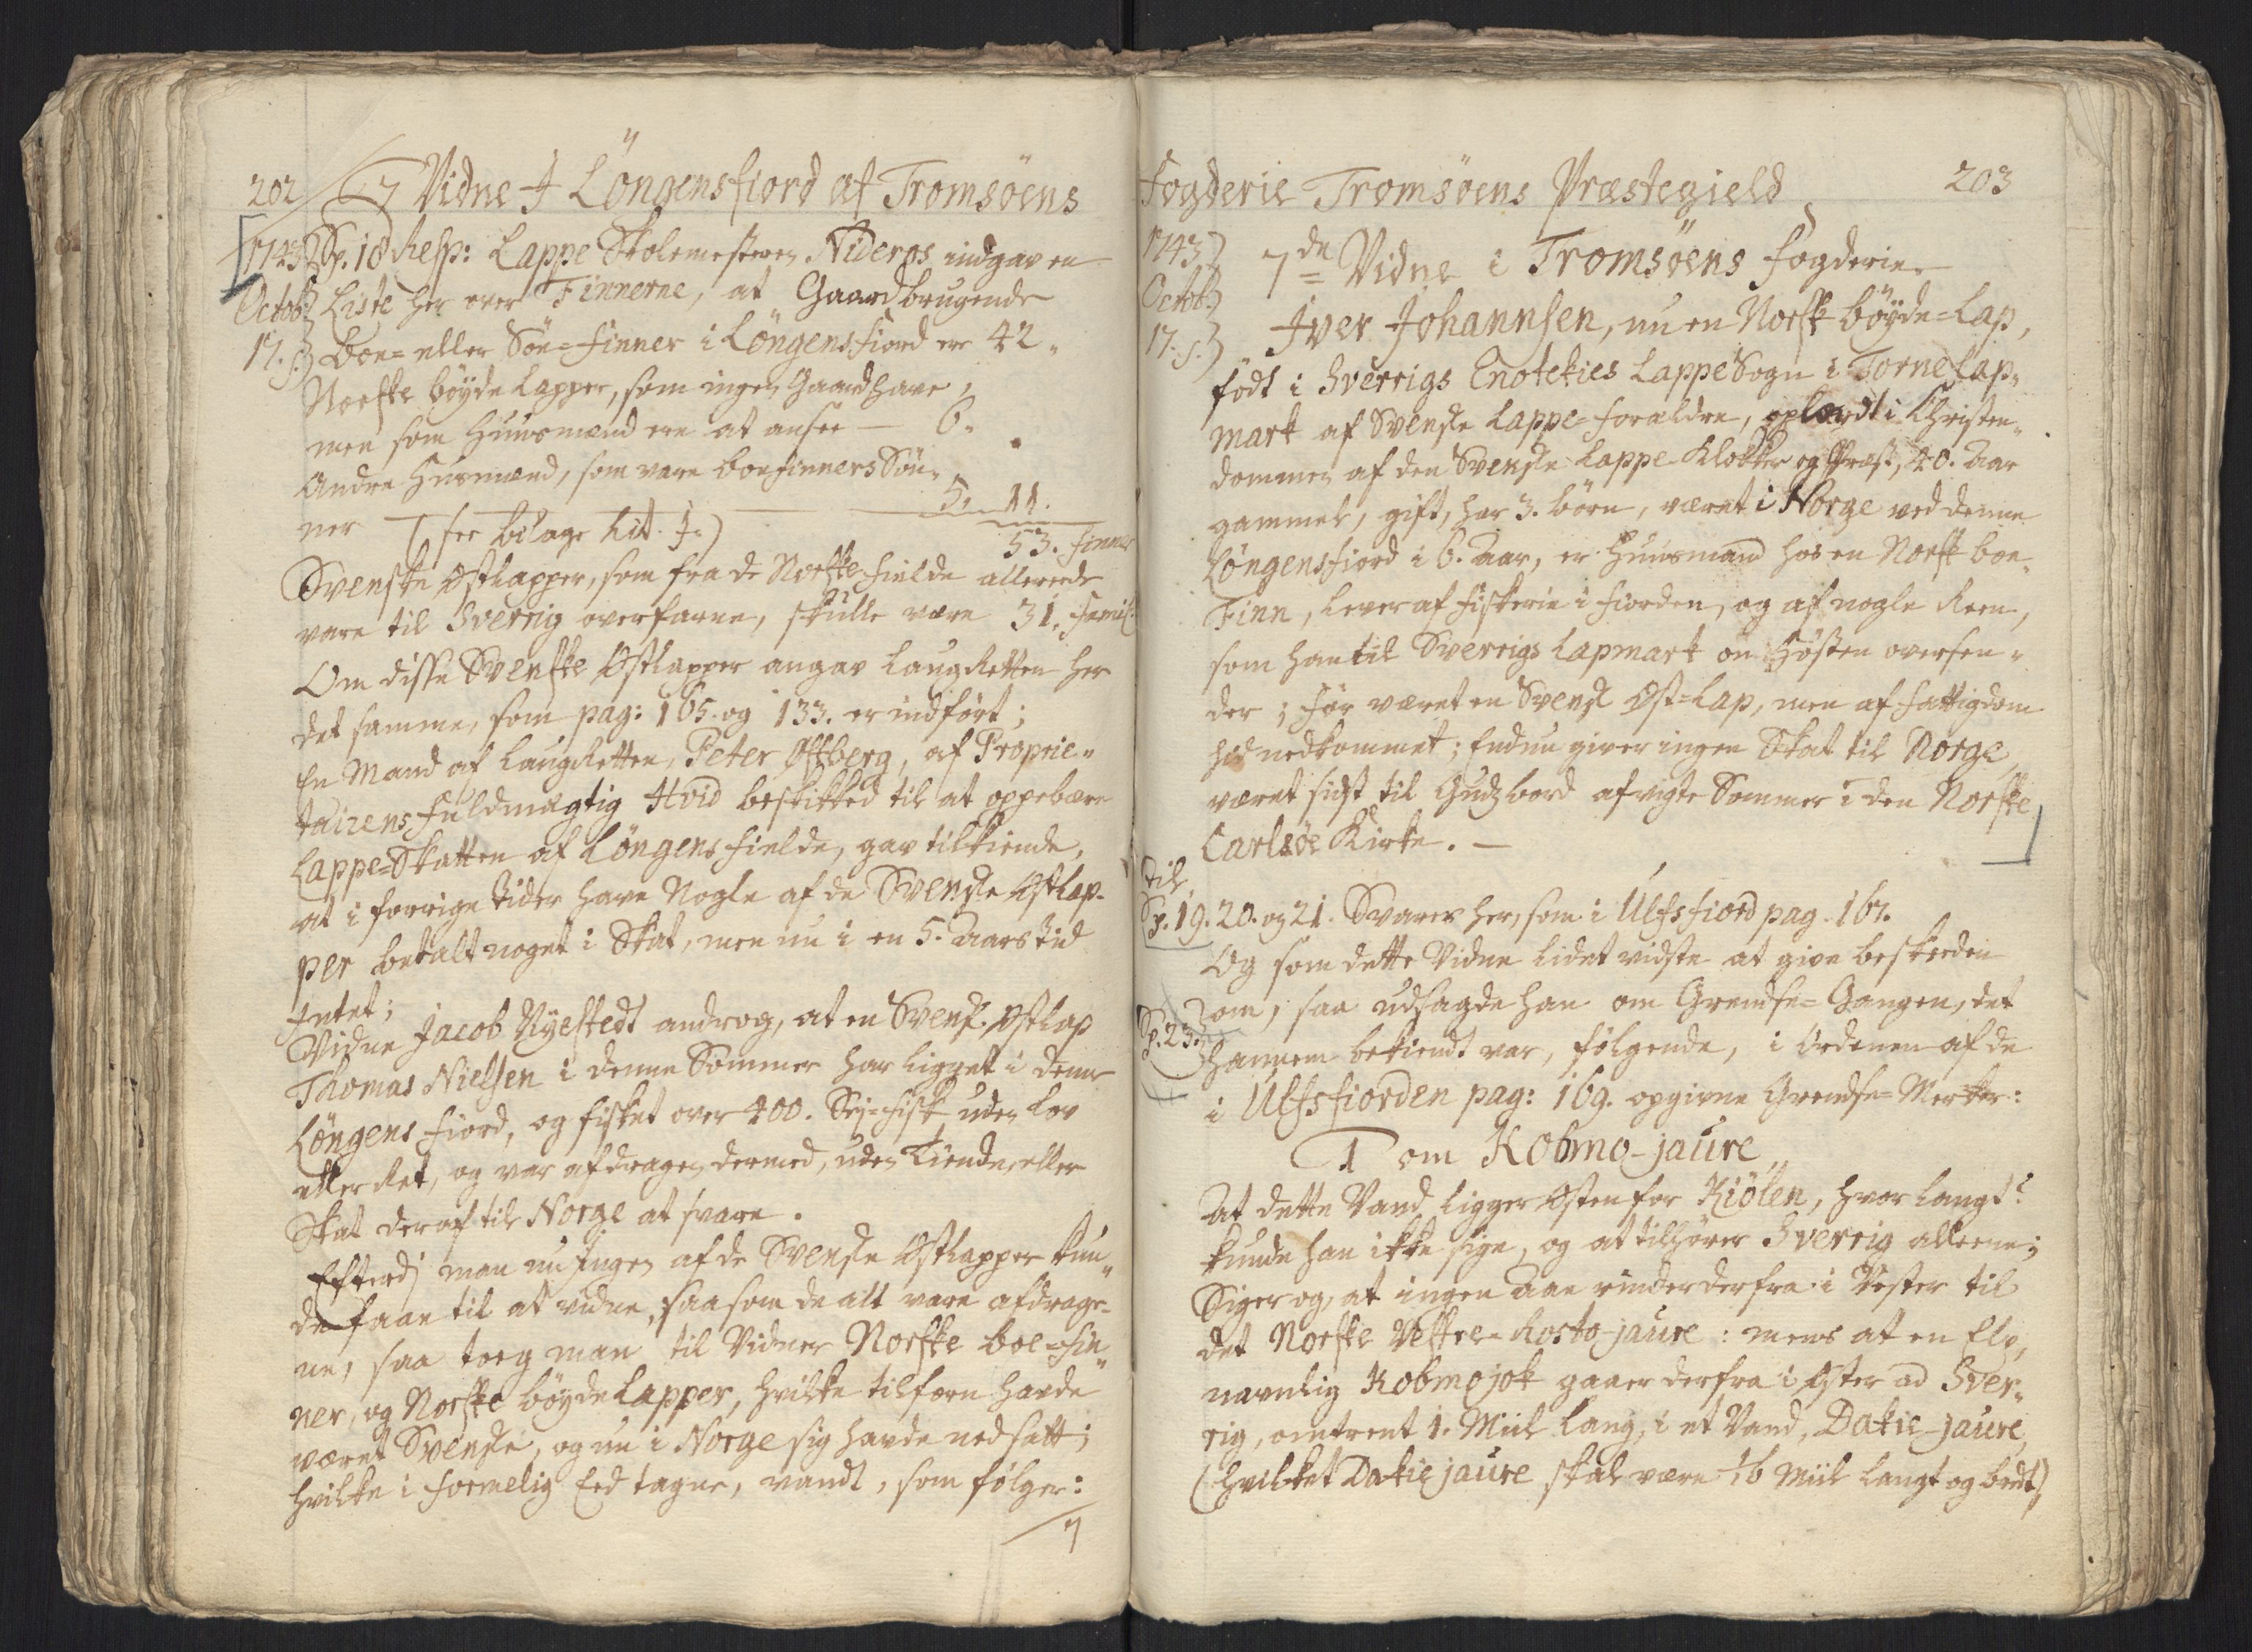 202 7 Vidne J Löngensfiord af Tromsöens
1743 Sp. 18 Resp: Lappe Skolemesteren Nideros indgav en
Octob: Liste her over Finnerne, at Gaardbrugende
17. s: boe= eller Söe=finner i Löngensfiord ere 42.
Norske böyde Lapper, som ingen Gaard have,
men som Huusmænd ere at ansee — 6.
Andre Husmænd, som vare boefinners Sön„
ner (see bilage Lit. J.) 5. 11.
53. finner
Svenske Østlapper, som fra de Norske fielde allerede
vare til Sverrig overfarne, skulle være 31. famil:
Om disse Svenske Østlapper angav LaugRetten her
det samme, som pag: 165. og 133. er indført;
En Mand af LaugRetten, Peter Østberg, af Proprie„
tairens fuldmægtig Hvid beskikked til at oppebære
Lappe=Skatten af Löngens fielde, gav tilkiende,
at i forrige tider have Nogle af de Svenske Østlap-
per betalt noget i Skat, men nu i en 5. Aars tid
Intet;
Vidne Jacob Nyestedt androg, at en Svensk Østlap
Thomas Nielsen i denne Sommer har ligget i denne
Löngens fiord, og fisket over 400. Sej=fisk uden lov
eller Ret, og var afdragen dermed, uden Tiende eller
Skat deraf til Norge at svare.
Efterdj man nu Ingen af de Svenske Østlapper kun„
de faae til at vidne, saasom de alt vare afdrage=
ne, saa toeg man til Vidner Norske boe=fin„
ner, og Norske böyde Lapper, hvilke tilforn havde
været Svenske, og nu i Norge sig havde nedsatt;
hvilke i formelig Eed tagne, vandt, som følger:
7
Fogderie Tromsöens Præstegield 203
1743) 7de Vidne i Tromsöens fogderie
Octob:)
17. s:) Iver Johannsen, nu en Norsk böyde=Lap,
födt i Sverrigs Enotekies LappeSogn i Torne Lap„
mark af Svenske Lappe-foraldre, oplærdt i Christen„
dommen af den Svenske Lappe-Klokker og Præst, 40. Aar
gammel, gift, har 3. börn, været i Norge ved denne
Löngensfiord i 6. Aar, er Huusmand hos en Norsk boe„
Finn, lever af fiskerie i fiorden, og af nogle Reen,
som han til Sverrigs Lapmark om Hösten oversen„
der; för været en Svensk Øst=Lap, men af fattigdom
hid nedkommet; Endnu giver ingen Skat til Norge,
været sidst til Gudz bord afvigte Sommer i den Norske
Carlsöe Kirke. —
til
Sp. 19. 20. og 21. Svares her, som i Ulfsfiord pag. 167.
Og som dette Vidne lidet vidste at give beskeeden
om, saa udsagde han om Grendse=Gangen, det
Sp. 23. hannem bekiendt var, fölgende, i Ordenen af de
i Ulfsfiorden pag: 169. opgivne Grendse=Merker:
1 om Kobmo-jaure
At dette Vand ligger Østen for Kiölen, hvor langt
kunde han ikke sige, og at tilhører Sverrig alleene;
Siger og, at ingen Aae rinder derfra i Vester til
det Norske Vestre=Rosto-jaure: mens at en Elv,
navnlig Kobmojok gaaer derfra i Øster ad Sver„
rig, omtrent 1. Miil lang, i et Vand, Dakie-jaure,
(hvilket Dakiejaure skal være 1/6 Miil langt og bredt)